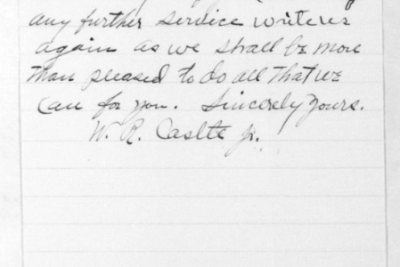 any further service write us
again as we shall be more
than pleased to do all that we
can for you. Sincerely yours.
W. R. Castle Jr.